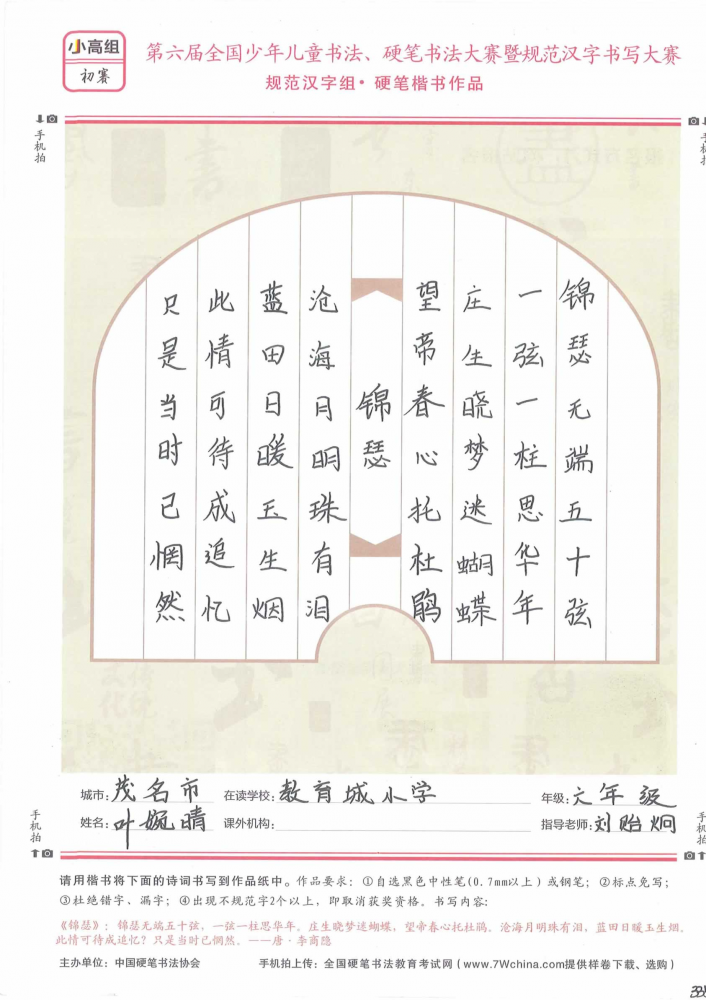 小高组
初赛
第六届全国少年儿童书法、硬笔书法大赛暨规范汉字书写大赛
规范汉字组·硬笔楷书作品
手机拍
手机拍
锦瑟无端五十弦
一弦一柱思华年
庄生晓梦迷蝴蝶
望帝春心托杜鹃
锦瑟
沧海月明珠有泪
蓝田日暖玉生烟
此情可待成追忆
只是当时已惘然
城市:茂名市 在读学校:教育城小学 年级:六年级
姓名:叶婉晴 课外机构: 指导老师:刘贻炯
手机拍
手机拍
请用楷书将下面的诗词书写到作品纸中。作品要求:①自选黑色中性笔(0.7mm以上)或钢笔;②标点免写;
③杜绝错字、漏字;④出现不规范字2个以上,即取消获奖资格。书写内容:
《锦瑟》:锦瑟无端五十弦,一弦一柱思华年。庄生晓梦迷蝴蝶,望帝春心托杜鹃。沧海月明珠有泪,蓝田日暖玉生烟。
此情可待成追忆?只是当时已惘然。——唐·李商隐
主办单位:中国硬笔书法协会 手机拍上传:全国硬笔书法教育考试网(www.7Wchina.com提供样卷下载、选购)